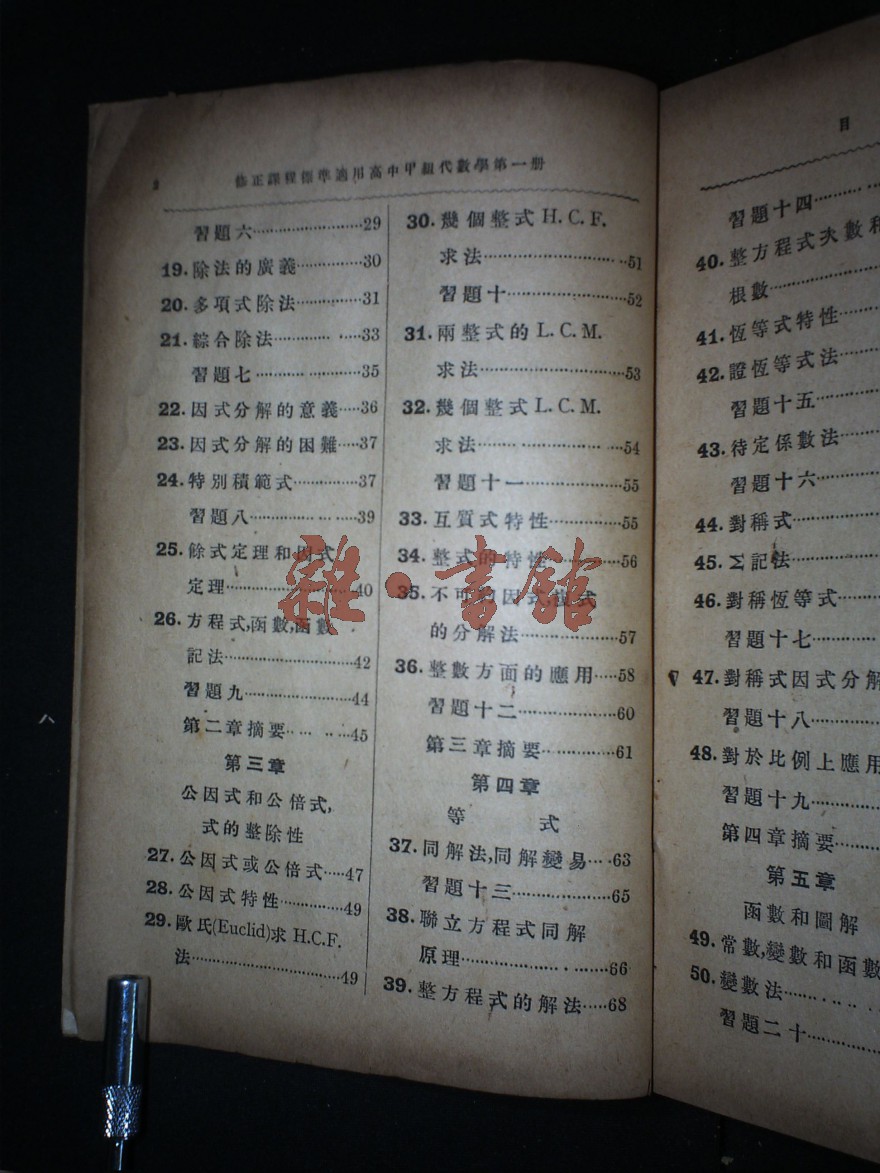 2
修正課程標準適用高中甲組代數學第一册
習題六⋯⋯⋯29
19.除法的廣義⋯⋯⋯30
20.多項式除法⋯⋯⋯31
21.綜合除法⋯⋯⋯33
習題七⋯⋯⋯35
22.因式分解的意義⋯⋯36
23.因式分解的困難⋯⋯37
24.特別積範式⋯⋯⋯37
習題八⋯⋯⋯39
25.餘式定理和因式
定理⋯⋯⋯40
26.方程式,函數,函數
記法⋯⋯⋯42
習題九⋯⋯⋯44
第二章摘要⋯⋯⋯45
第三章
公因式和公倍式,
式的整除性
27.公因式或公倍式⋯⋯47
28.公因式特性⋯⋯⋯49
29.歐氏(Euclid)求H.C.F.
法⋯⋯⋯49
30.幾個整式H.C.F.
求法⋯⋯⋯51
習題十⋯⋯⋯52
31.兩整式的L.C.M.
求法⋯⋯⋯53
32.幾個整式L.C.M.
求法⋯⋯⋯54
習題十一⋯⋯⋯55
33.互質式特性⋯⋯⋯55
34.整式的特性⋯⋯⋯56
35.不可約因式,整式
的分解法⋯⋯⋯57
36.整數方面的應用⋯⋯58
習題十二⋯⋯⋯60
第三章摘要⋯⋯⋯61
第四章
等 式
37.同解法,同解變易⋯⋯63
習題十三⋯⋯⋯65
38.聯立方程式同解
原理⋯⋯⋯66
39.整方程式的解法⋯⋯68
雜·書館
目
習題十四⋯⋯⋯
40.整方程式次數和
根數⋯⋯⋯
41.恆等式特性⋯⋯⋯
42.證恆等式法⋯⋯⋯
習題十五⋯⋯⋯
43.待定係數法⋯⋯⋯
習題十六⋯⋯⋯
44.對稱式⋯⋯⋯
45.Σ記法⋯⋯⋯
46.對稱恆等式⋯⋯⋯
習題十七⋯⋯⋯
47.對稱式因式分解
習題十八⋯⋯⋯
48.對於比例上應用
習題十九⋯⋯⋯
第四章摘要⋯⋯⋯
第五章
函數和圖解
49.常數,變數和函數
50.變數法⋯⋯⋯
習題二十⋯⋯⋯